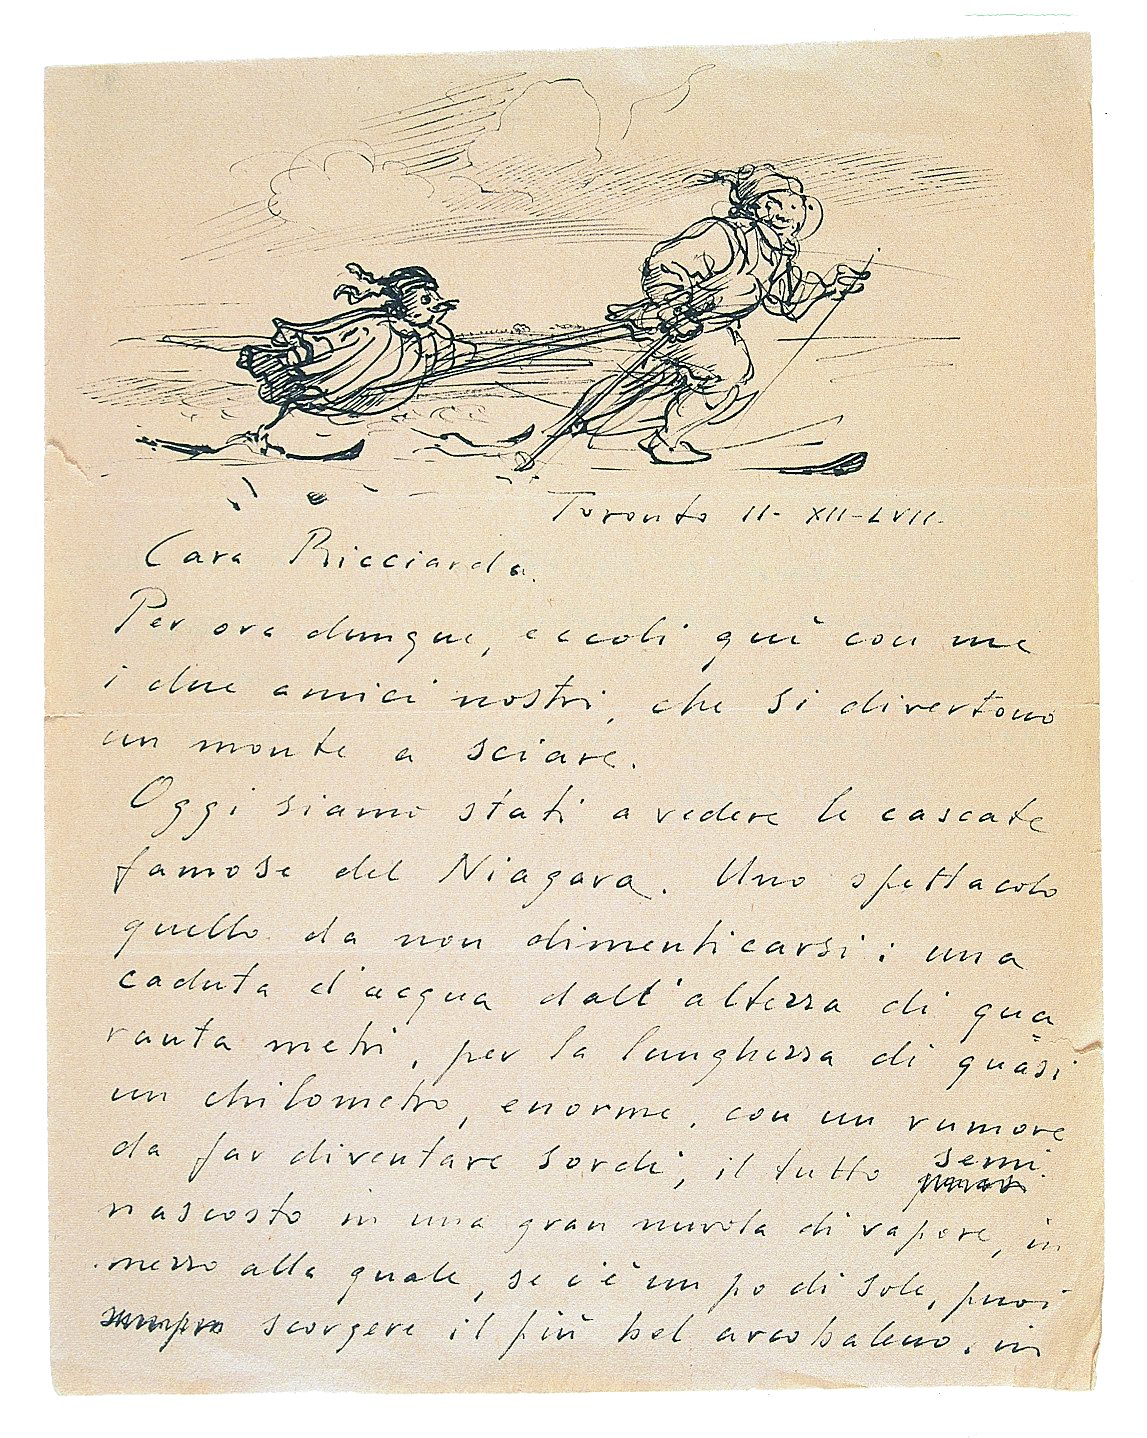 Toronto 11-XII-LVII.
Cara Ricciarda.
Per ora dunque, eccoli quì con me
i due amici nostri, che si divertono
un monte a sciare.
Oggi siamo stati a vedere le cascate
famose del Niagara. Uno spettacolo
quello da non dimenticarsi: una
caduta d'acqua dall'altezza di qua
ranta metri, per la lunghezza di quasi
un chilometro, enorme, con un rumore
da far diventare sordi, il tutto semi
nascosto in una gran nuvola di vapore, in
mezzo alla quale, se c'è un po di sole, puoi
scorgere il più bel arcobaleno. in